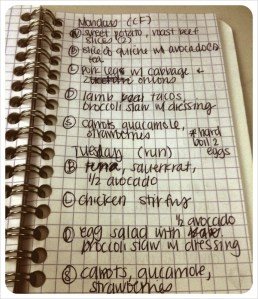 Monday (CF)
sweet potato, roast beef
slices (2)
B sliced quiche w/ avocado &
tea
C pork w/ cabbage +
onions
D lamb tacos,
broccoli slaw w/ dressing
S carrots, guacamole,
strawberries
* hard
boil 2
eggs
Tuesday (run)
B tuna, sauerkraut,
1/2 avocado
C chicken stir fry
1/2 avocado
D egg salad with
broccoli slaw w/ dressing
S carrots, guacamole,
strawberries